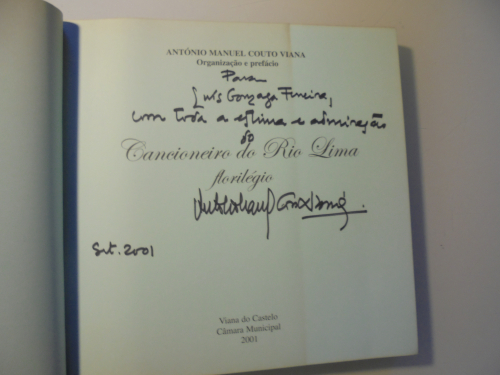 ANTÓNIO MANUEL COUTO VIANA
Organização e prefácio
Para
Luís Gonzaga Fereira,
com toda a estima e admiração
do
Cancioneiro do Rio Lima
florilégio
Set. 2001
Viana do Castelo
Câmara Municipal
2001